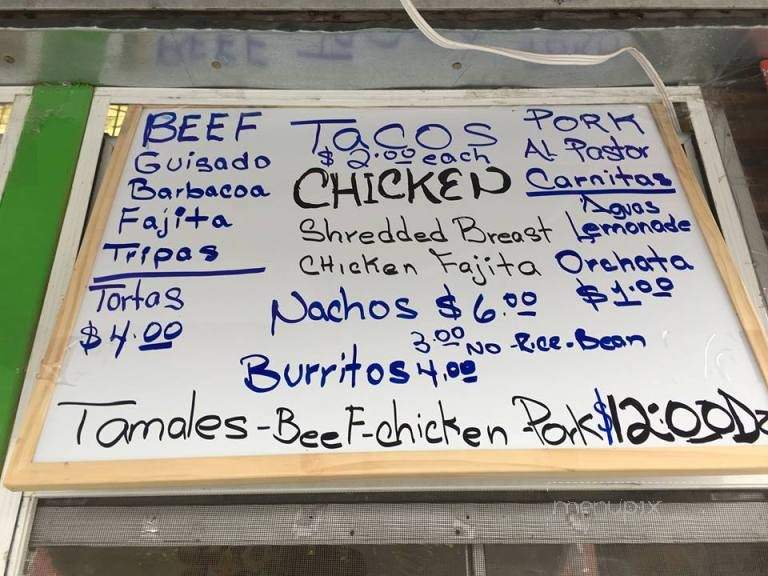 BEEF
Guisado
Barbacoa
Fajita
Tripas
Tortas
$4.00
TACOS
$2.00 each
CHICKEN
Shredded Breast
CHicken Fajita
PORK
Al Pastor
Carnitas
Aguas
Lemonade
Orchata
$1.00
Nachos $6.00
3.00 NO-Rice-Bean
Burritos 4.00
Tamales-BeeF-chicken Pork $12:00Dz
menupix